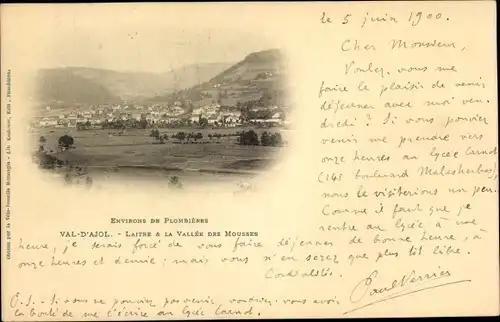 le 5 juin 1900.
Cher Monsieur,
Voulez-vous me
faire le plaisir de venir
déjeuner avec moi ven-
dredi ? Si vous pouviez
venir me prendre vers
onze heures au lycée Carnot
(145 boulevard Malesherbes),
nous le visiterions un peu.
Comme il faut que je
rentre au lycée à une
heure, je serais forcé de vous faire déjeuner de bonne heure, à
onze heures et demie ; mais vous n'en serez que plus tôt libre.
Cordialités.
Paul Verrier
P.S. Si vous ne pouviez pas venir, voudriez-vous avoir
la bonté de me l'écrire au lycée Carnot.
ENVIRONS DE PLOMBIÈRES
VAL-D'AJOL. - LAITRE & LA VALLÉE DES MOUSSES